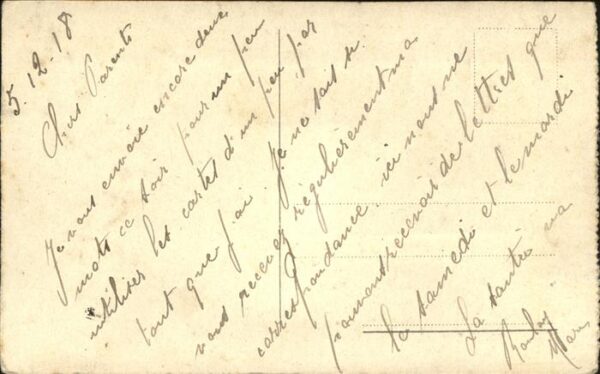 5.12.18
Chers Parents
Je vous envoie encore deux
mots ce soir pour un peu
utiliser les cartes d'un peu par
tout que j'ai. Je ne sais si
vous recevez régulièrement ma
correspondance, ici nous ne
pouvons recevoir de lettres que
le samedi et le mardi
La santé va